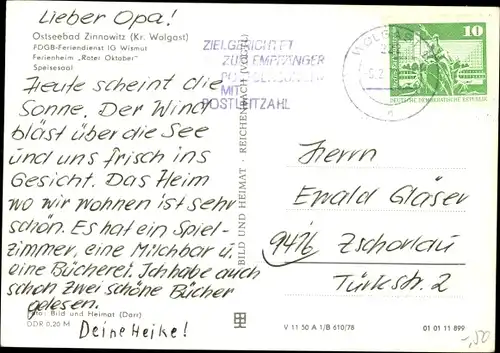 Lieber Opa!
Ostseebad Zinnowitz (Kr. Wolgast)
FDGB-Feriendienst IG Wismut
Ferienheim „Roter Oktober"
Speisesaal
Heute scheint die
Sonne. Der Wind
bläst über die See
und uns frisch ins
Gesicht. Das Heim
wo wir wohnen ist sehr
schön. Es hat ein Spiel-
zimmer, eine Milchbar u.
eine Bücherei. Ich habe auch
schon zwei schöne Bücher
gelesen.
Bild und Heimat (Darr)
DDR 0,20 M
Deine Heike!
BILD UND HEIMAT · REICHENBACH (VOGTL)
ZIELGERICHTET
ZUM EMPFÄNGER
MIT
POSTLEITZAHL
WOLGAST
10
DEUTSCHE DEMOKRATISCHE REPUBLIK
Herrn
Ewald Gläser
9416 Zschorlau
Türkstr. 2
V 11 50 A 1/B 610/78
01 01 11 899
-,50